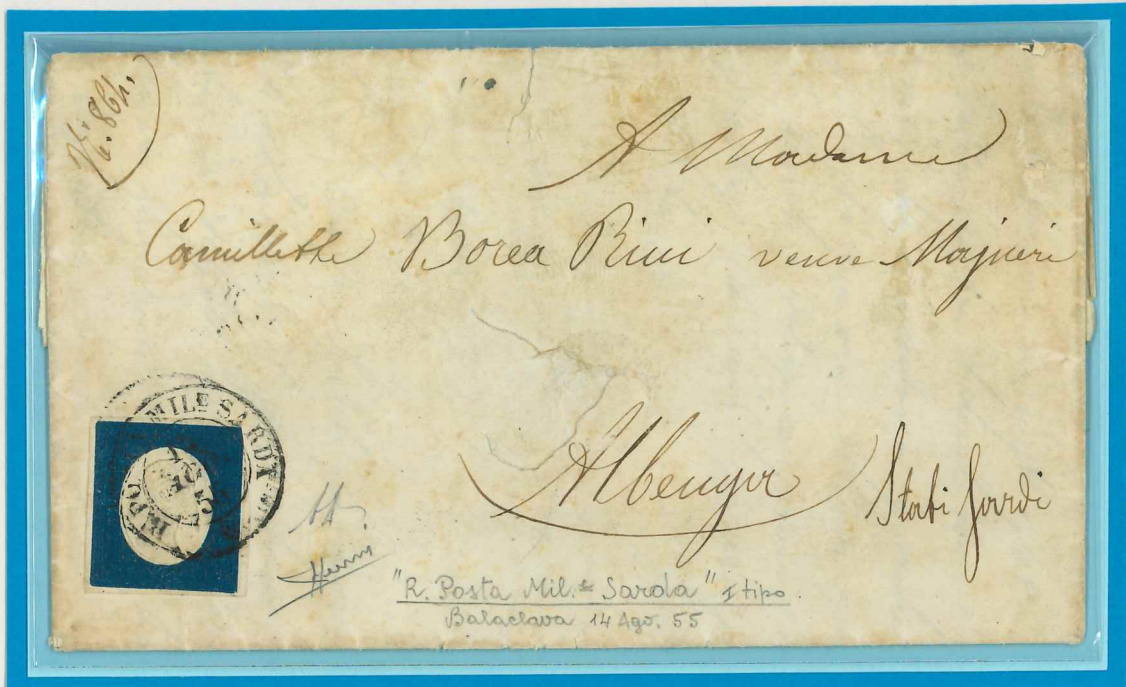 A Madame
Camillethe Borea Rini veuve
Albenga
Stati Sardi
MILE SARDA
"R. Posta Mil.e Sarda" I tipo.
Balaclava 14 Ago. 55